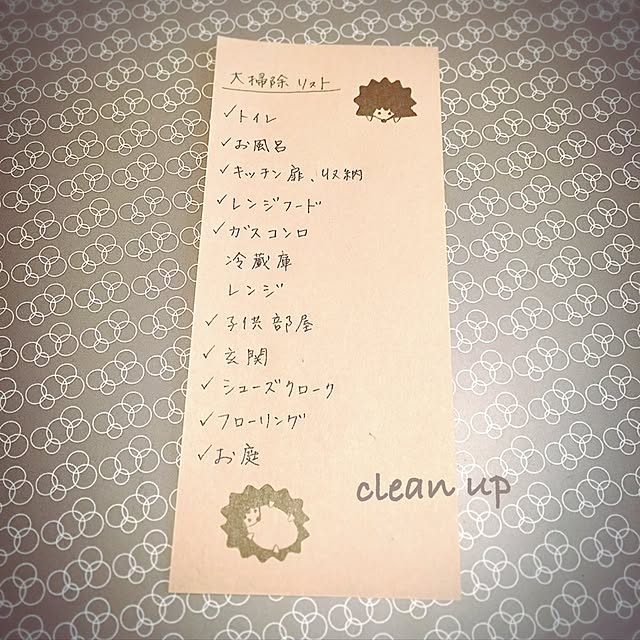 大掃除リスト
✓トイレ
✓お風呂
✓キッチン扉、収納
✓レンジフード
✓ガスコンロ
冷蔵庫
レンジ
✓子供部屋
✓玄関
✓シューズクローク
✓フローリング
✓お庭
clean up